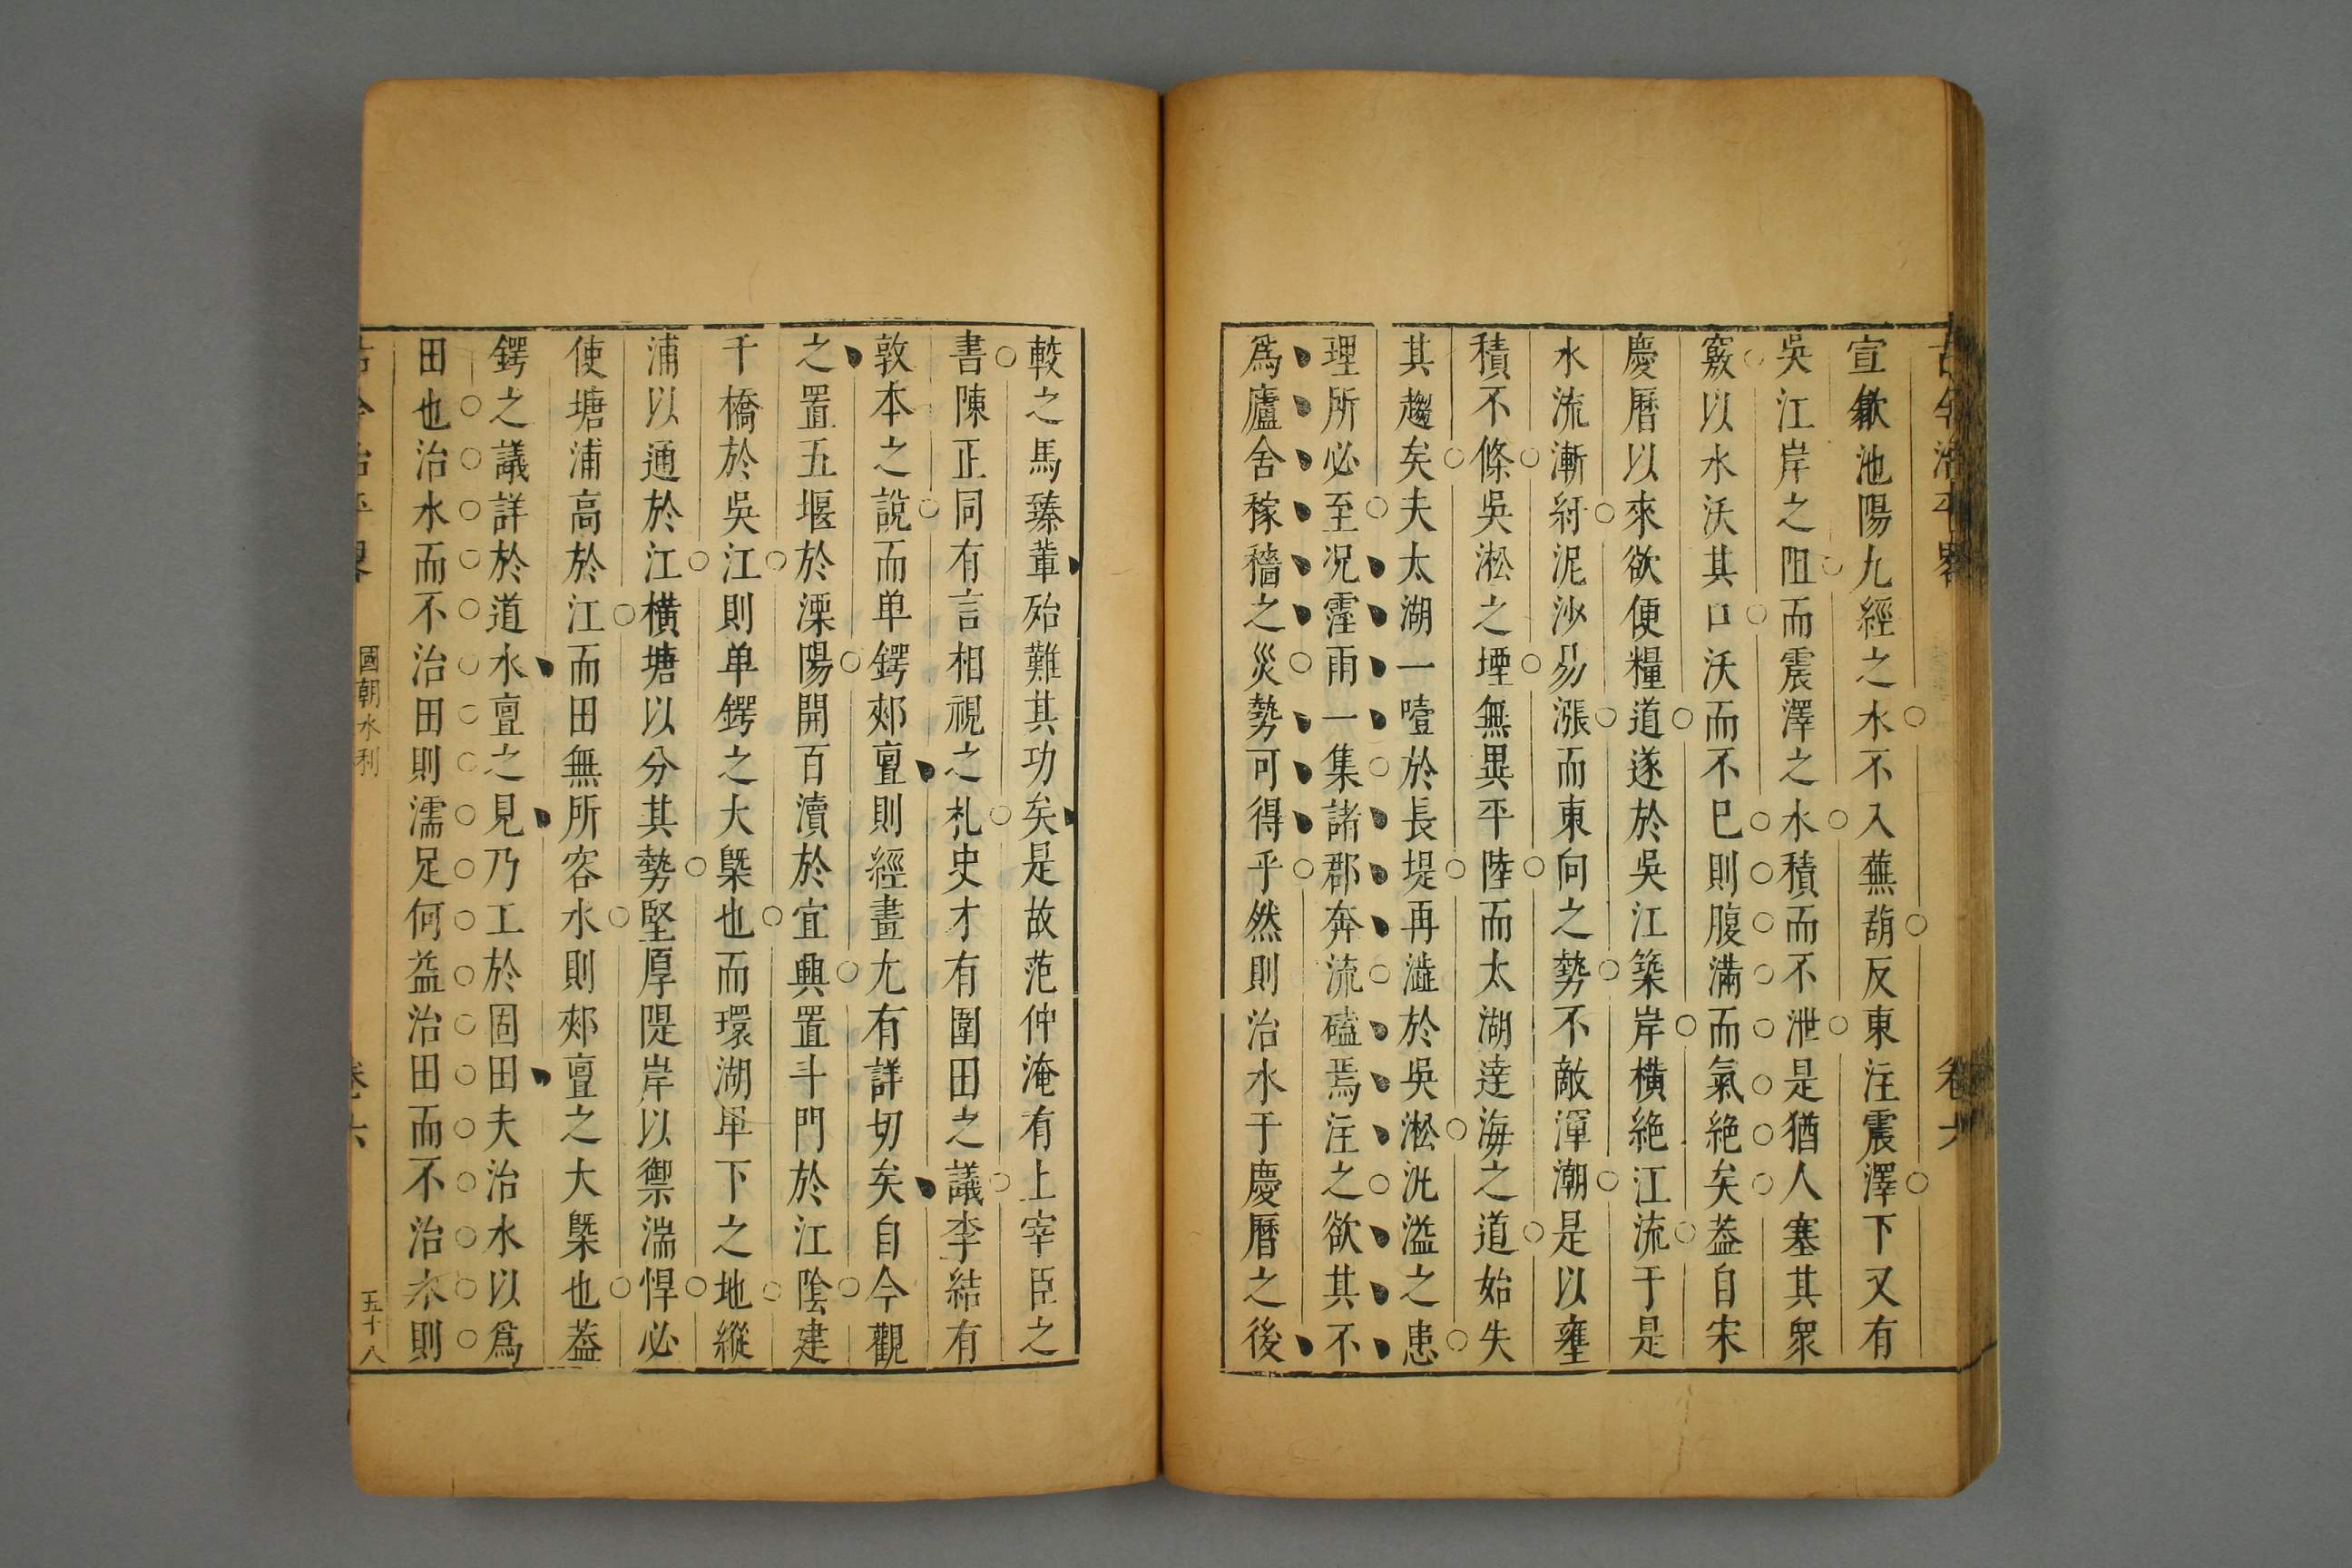 古今治平畧
卷六
宣歙池陽九經之水不入蕪葫反東注震澤下又有
吳江岸之阻而震澤之水積而不泄是猶人塞其衆
竅以水沃其口沃而不已則腹滿而氣絶矣葢自宋
慶曆以來欲便糧道遂於吳江築岸橫絶江流于是
水流漸紆泥沙易漲而東向之勢不敵渾潮是以壅
積不條吳淞之堙無異平陸而太湖達海之道始失
其趨矣夫太湖一噎於長堤再澁於吳淞汎溢之患
理所必至况霪雨一集諸郡奔流磕焉注之欲其不
爲廬舍稼穡之災勢可得乎然則治水于慶曆之後
較之馬臻輩殆難其功矣是故范仲淹有上宰臣之
書陳正同有言相視之札史才有圍田之議李結有
敦本之說而单鍔郏亶則經畫尤有詳切矣自今觀
之置五堰於溧陽開百瀆於宜興置斗門於江陰建
千橋於吳江則单鍔之大槩也而環湖卑下之地縱
浦以通於江橫塘以分其勢堅厚隄岸以禦湍悍必
使塘浦高於江而田無所容水則郏亶之大槩也葢
鍔之議詳於道水亶之見乃工於固田夫治水以爲
田也治水而不治田則濡足何益治田而不治水則
古今治平畧
國朝水利
卷六
五十八